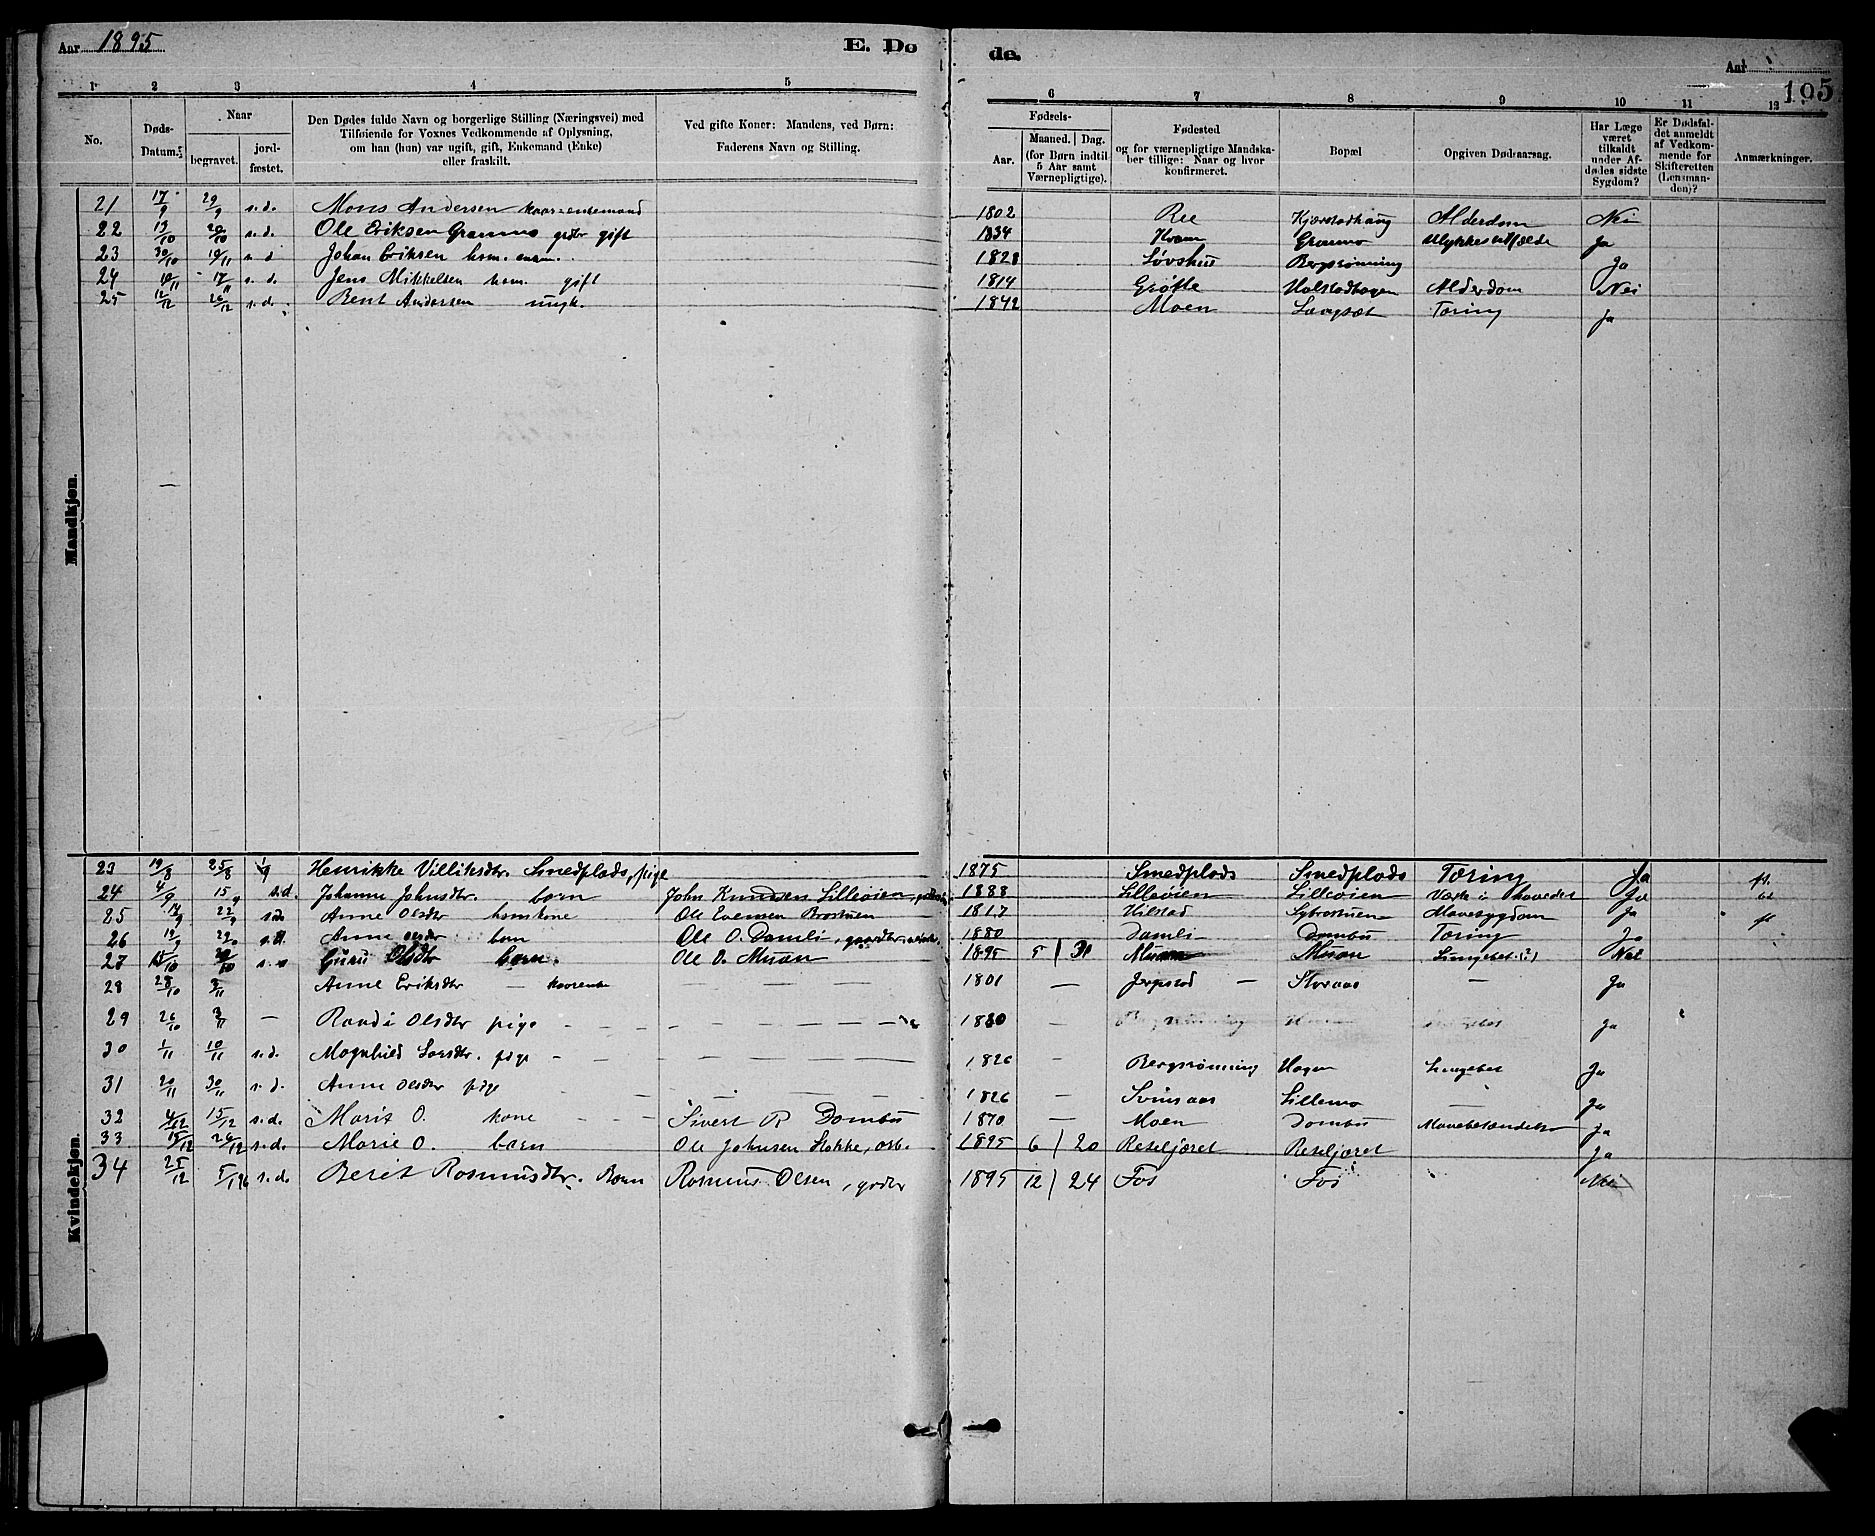 Aar 1895
E. Dø
de.
Aar
195
1 2 3 4 5
6 7 8 9 10 11 12
No.
Døds-
Datum.
Naar
begravet.
jord-
fæstet.
Den Dødes fulde Navn og borgerlige Stilling (Næringsvei) med
Tilføiende for Voxnes Vedkommende af Oplysning,
om han (hun) var ugift, gift, Enkemand (Enke)
eller fraskilt.
Ved gifte Koner: Mandens, ved Børn:
Faderens Navn og Stilling.
Fødsels-
Aar.
Maaned. Dag.
(for Børn indtil
5 Aar samt
Værnepligtige).
Fødested
og for værnepligtige Mandska-
ber tillige: Naar og hvor
konfirmeret.
Bopæl
Opgiven Dødsaarsag.
Har Læge
været
tilkaldt
under Af-
dødes sidste
Sygdom?
Er Dødsfal-
det anmeldt
af Vedkom-
mende for
Skifteretten
(Lensman-
den)?
Anmærkninger.
Mandkjøn.
21 17/9 29/9 s.d. Mons Andersen 1802 Ree Kjærstadhaug Alderdom Nei
22 19/10 20/10 s.d. Ole Eriksen Gramo grdbr gift 1834 Kvam Gramo Ulykkestilfælde Ja
23 30/10 10/11 s.d. Johan Eriksen hsm. 1828 Løvshus Bergrønning Ja
24 10/11 17/11 s.d. Jens Mikkelsen hsm. gift 1814 Grøtte Holstadhagen Alderdom Nei
25 12/12 20/12 s.d. Bent Andersen ungk. 1842 Moen Langsæt Tæring Ja
Kvindekjøn.
23 19/8 25/8 1/9 Henrikke Villiksdtr. Smedplads, pige 1875 Smedplads Smedplads Tæring Ja
24 4/9 15/9 s.d. Johanne Johnsdtr. barn John Knudsen Lilleøien, 1888 Lilleøien Lilleøien Væske i hovedet Ja
25 14/9 22/9 s.d. Anne Olsdtr hsmkone Ole Evensen Brostuen 1817 Hilstad Mavesygdom Ja
26 19/9 29/9 s.d. Anne Olsdtr barn Ole O. Damli, gaardbr. 1880 Damli Dombu Tæring Ja
27 15/10 20/10 s.d. Guru Olsdtr barn. Ole O. Muan 1895 5 31 Muan Muan Lungebet. (?) Nei
28 28/10 3/11 Anne Eriksdtr — kaarenke 1801 — Jerpstad — Storaas — Ja
29 26/10 3/11 — Randi Olsdtr pige 1880 — Ja
30 1/11 10/11 s.d. Magnhild Larsdtr. pige 1826 — Bergrønning Hagen Lungebet Ja
31 20/11 30/11 s.d. Anne Olsdtr pige 1826 — Svinsaas Lillemo — Ja
32 4/12 15/12 s.d. Marit O. kone Sivert R Dombu 1870 — Moen Dombu Mavebetændelse Ja
33 15/12 26/12 s.d. Marie O. barn Ole Johnsen Stokke, arb. 1895 6 20 Reseljæret Reseljæret Ja
34 25/12 5/1 96 s.d. Berit Rasmusdtr. Barn Rasmus Olsen, grdbr 1895 12 24 Fos Fos Nei